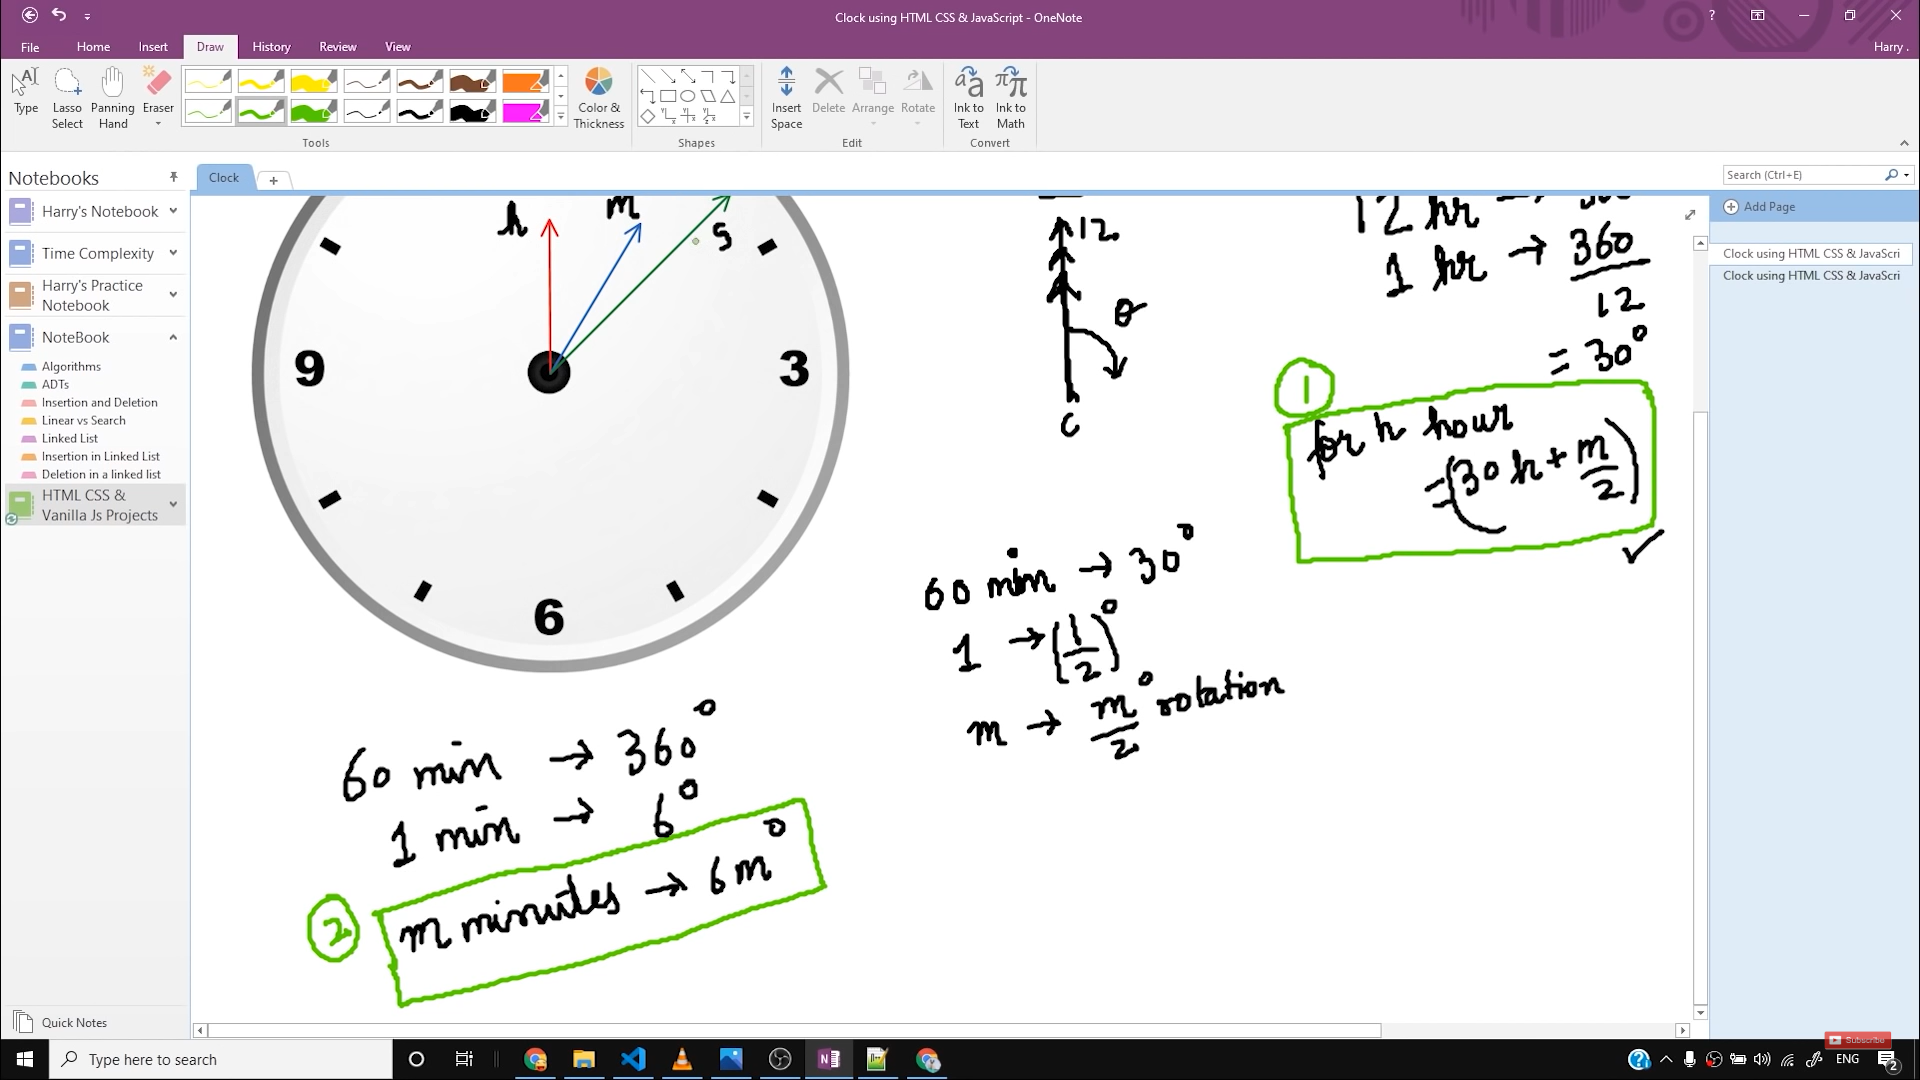 Clock using HTML CSS & JavaScript - OneNote
?
File Home Insert Draw History Review View
Harry .
Type
Lasso Select
Panning Hand
Eraser
Color & Thickness
Insert Space
Delete
Arrange
Rotate
Ink to Text
Ink to Math
Tools
Shapes
Edit
Convert
Notebooks
Clock
+
Search (Ctrl+E)
Harry's Notebook
Time Complexity
Harry's Practice
Notebook
NoteBook
Algorithms
ADTs
Insertion and Deletion
Linear vs Search
Linked List
Insertion in Linked List
Deletion in a linked list
HTML CSS &
Vanilla Js Projects
Quick Notes
Add Page
Clock using HTML CSS & JavaScri
Clock using HTML CSS & JavaScri
h m s
9 3
6
12
θ
C
12 hr →
1 hr → 360/12
= 30°
1
for h hour
= (30h + m/2)
✓
60 min → 30°
1 → (1/2)°
m → m/2° rotation
60 min → 360°
1 min → 6°
2
m minutes → 6m°
Type here to search
Subscribe
ENG
2